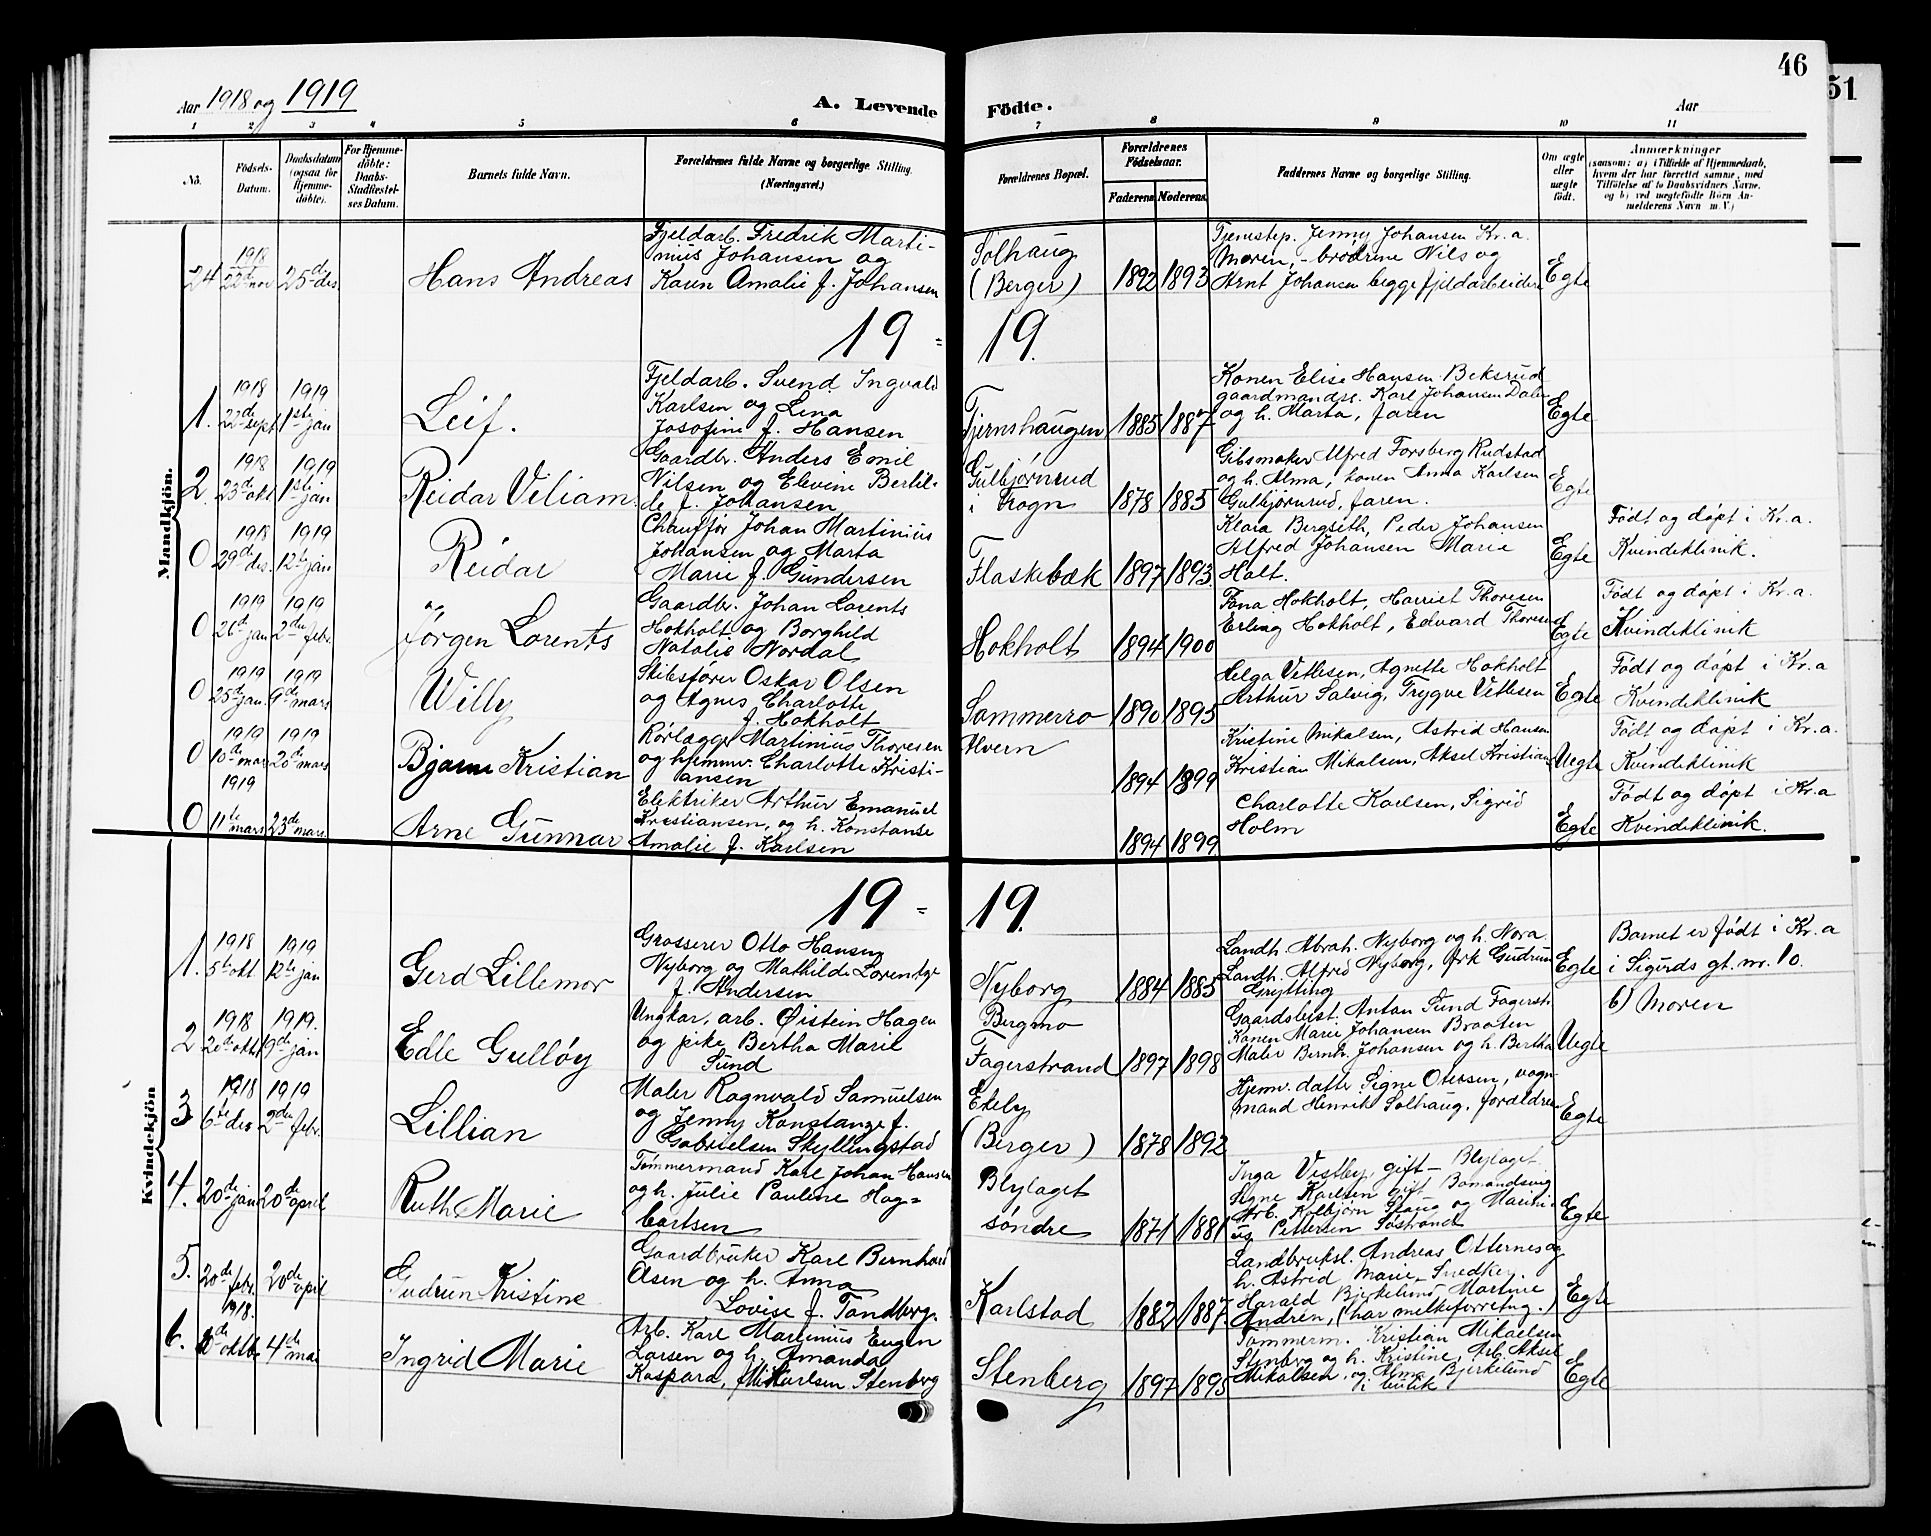 46
51
Aar 1918 og 1919
A. Levende Födte.
Aar
1 2 3 4 5 6 7 8 9 10 11
No.
Födsels-Datum.
Daabsdatum (ogsaa for Hjemmedöbte).
For Hjemmedöbte: Daabs-Stadfæstelses Datum.
Barnets fulde Navn.
Forældrenes fulde Navne og borgerlige Stilling. (Næringsvei.)
Forældrenes Bopæl.
Forældrenes Födselsaar.
Faderens Moderens.
Faddernes Navne og borgerlige Stilling.
Om ægte eller uægte födt.
Anmærkninger
(saasom: a) i Tilfælde af Hjemmedaab, hvem der har forrettet samme, med Tilföielse af to Daabsvidners Navne, og b) ved uægtefödte Börn Anmelderens Navn m. V.)
Mandkjön.
24 1918 22de nov 25de des.
Hans Andreas
Fjeldarb. Fredrik Marti-
nius Johansen og
Karen Amalie f. Johansen
Solhaug
(Berger)
1892 1893
Tjenestep. Jenny Johansen Kr.a.
Moren, - brødrene Nils og
Arnt Johansen begge fjeldarbeidere
Egte
19 = 19.
1. 1918 22de sept 1919 1ste jan
Leif.
Fjeldarb. Svend Ingvald
Karlsen og Lena
Josofine f. Hansen
Tjernshaugen
1885 1887
Konen Elise Hansen Beksrud
gaardmandss. Karl Johansen Dalen
og h. Marta, faren
Egte
2. 1918 23de okt 1919 1ste jan
Reidar Viliam.
Gaardbr. Anders Emil
Nilsen og Elevine Bertil-
de f. Johansen
Gulbjørnrud
i Frogn
1878 1885
Gibsmaker Alfred Forsberg Rudstad
og h. Alma, konen Anna Karlsen
Gulbjørnrud, faren.
Egte
0 1918 29de des. 1919 12te jan
Reidar
Chauffør Johan Martinius
Johansen og Marta
Marie f. Gundersen
Flaskebæk
1897 1893
Klara Bergseth, Peder Johansen
Alfred Johansen Marie
Holt.
Egte
Født og døpt i Kr.a.
Kvindeklinik.
0 1919 26de jan 1919 2den febr.
Jørgen Lorents
Gaardbr. Johan Lorents
Hokholt og Borghild
Natalie Nordal
Hokholt
1894 1900
Hokholt, Harriet Thoresen
Erling Hokholt, Edvard Thoresen
Egte
Født og døpt i Kr.a.
Kvindeklinik
0 1919 25de jan. 1919 9de mars
Willy
Skibsfører Oskar Olsen
og Agnes Charlotte
f. Hokholt
Sommerro
1890 1895
Helga Vetlesen, Agnette Hokholt
Arthur Salvig, Trygve Vetlesen
Egte
Født og døpt i Kr.a
Kvindeklinik
0 1919 10de mars 1919 20de mars
Bjarne Kristian
Rørlægger Martinius Thoresen
og hjemmv. Charlotte Kristi-
ansen
Alvern
1894 1899
Kristine Mikalsen, Astrid Hansen
Kristian Mikalsen, Aksel Kristian
Uegte
Født og døpt i Kr.a.
Kvindeklinik
0 1919 11te mars 23de mars
Arne Gunnar
Elektriker Arthur Emanuel
Kristiansen, og h. Konstanse
Amalie f. Karlsen
1894 1899
Charlotte Karlsen, Sigrid
Holm
Egte
Født og døpt i Kr.a
Kvindeklinik.
Kvindekjön
19 = 19.
1. 1918 5te okt 1919 12te jan
Gerd Lillemor
Grosserer Otto Hansen
Nyborg og Mathilde Lorentze
f. Andersen
Nyborg
1884 1885
Landh. Abrah. Nyborg og h. Nora
Landh. Alfred Nyborg, frk Gudrun
Grytting
Egte
Barnet er født i Kr.a
i Sigurds gt. nr. 10.
2 1918 20de okt 1919. 19de jan
Edle Gulløy
Ungkar, arb. Øistein Hagen
og pike Bertha Marie
Sund
Bergmo
Fagerstrand
1897 1898
Gaardsbest. Anton Sund Fagerst.
Konen Marie Johansen Braaten
Maler Bernh. Johansen og h. Bertha
Uegte
b) Moren
3 1918 6te des 1919 2den febr.
Lillian
Maler Ragnvald Samuelsen
og Jenny Konstanse f.
Gabrielsen Skyllingstad
Ekely
(Berger)
1878 1892
Hjemv. datter Signe Otersen, vogn-
mand Henrik Solhaug, foreldrene
Egte
4. 20de jan 20de april
Ruth Marie
Tømmermand Karl Johan Hansen
og h. Julie Pauline Hag=
bartsen
Blylaget
søndre
1871 1881
Inga Vestby, gift - Blylaget
Signe Karlsen gift Bomandsvig
Arb. Kolbjørn Haug og Martini-
us Pettersen Søstrand
Egte
5. 20de febr. 20de april
Gudrun Kristine
Gaardbruker Karl Bernhard
Olsen og h. Anna
Lovise f. Tandberg.
Karlstad
1882 1887
Landbruksl. Andreas Otternes og
h. Astrid Marie, Snedker
Harald Bjerkelund Martine
Andrén, (har melkeforretng.)
Egte
6. 1918. oktbr 4de mai
Ingrid Marie
Arb. Karl Martinius Eugen
Larsen og h. Amanda
Kaspara, f. Mikarlsen Stenberg
Stenberg
1897 1895
Tømmerm. Kristian Mikaelsen
Stenberg og h. Kristine, Arb. Aksel
Mikalsen, og Alma Bjerkelund
i butik
Egte